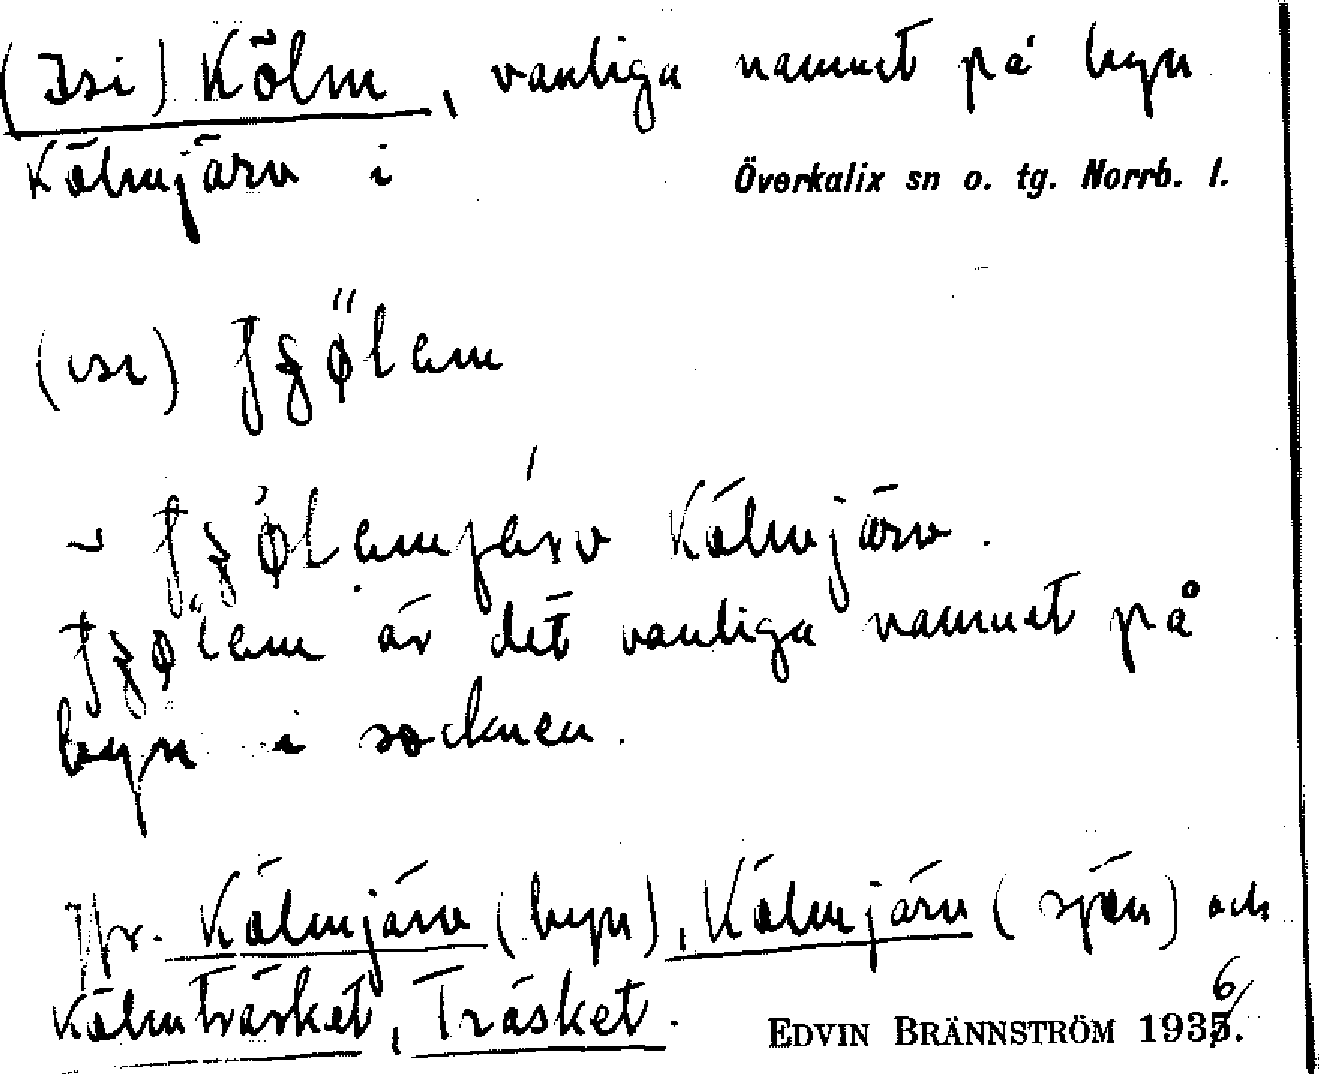 (Isi) Kölm, vanliga namnet på byn
Kölmjärv i Överkalix sn o. tg. Norrb. l.
(ɩsɩ)
Kölmjärv.
är det vanliga namnet på
byn i socknen.
Jfr. Kölmjärv (byn), Kölmjärv (sjön) och
Kölmträsket, Träsket.
EDVIN BRÄNNSTRÖM 1936.